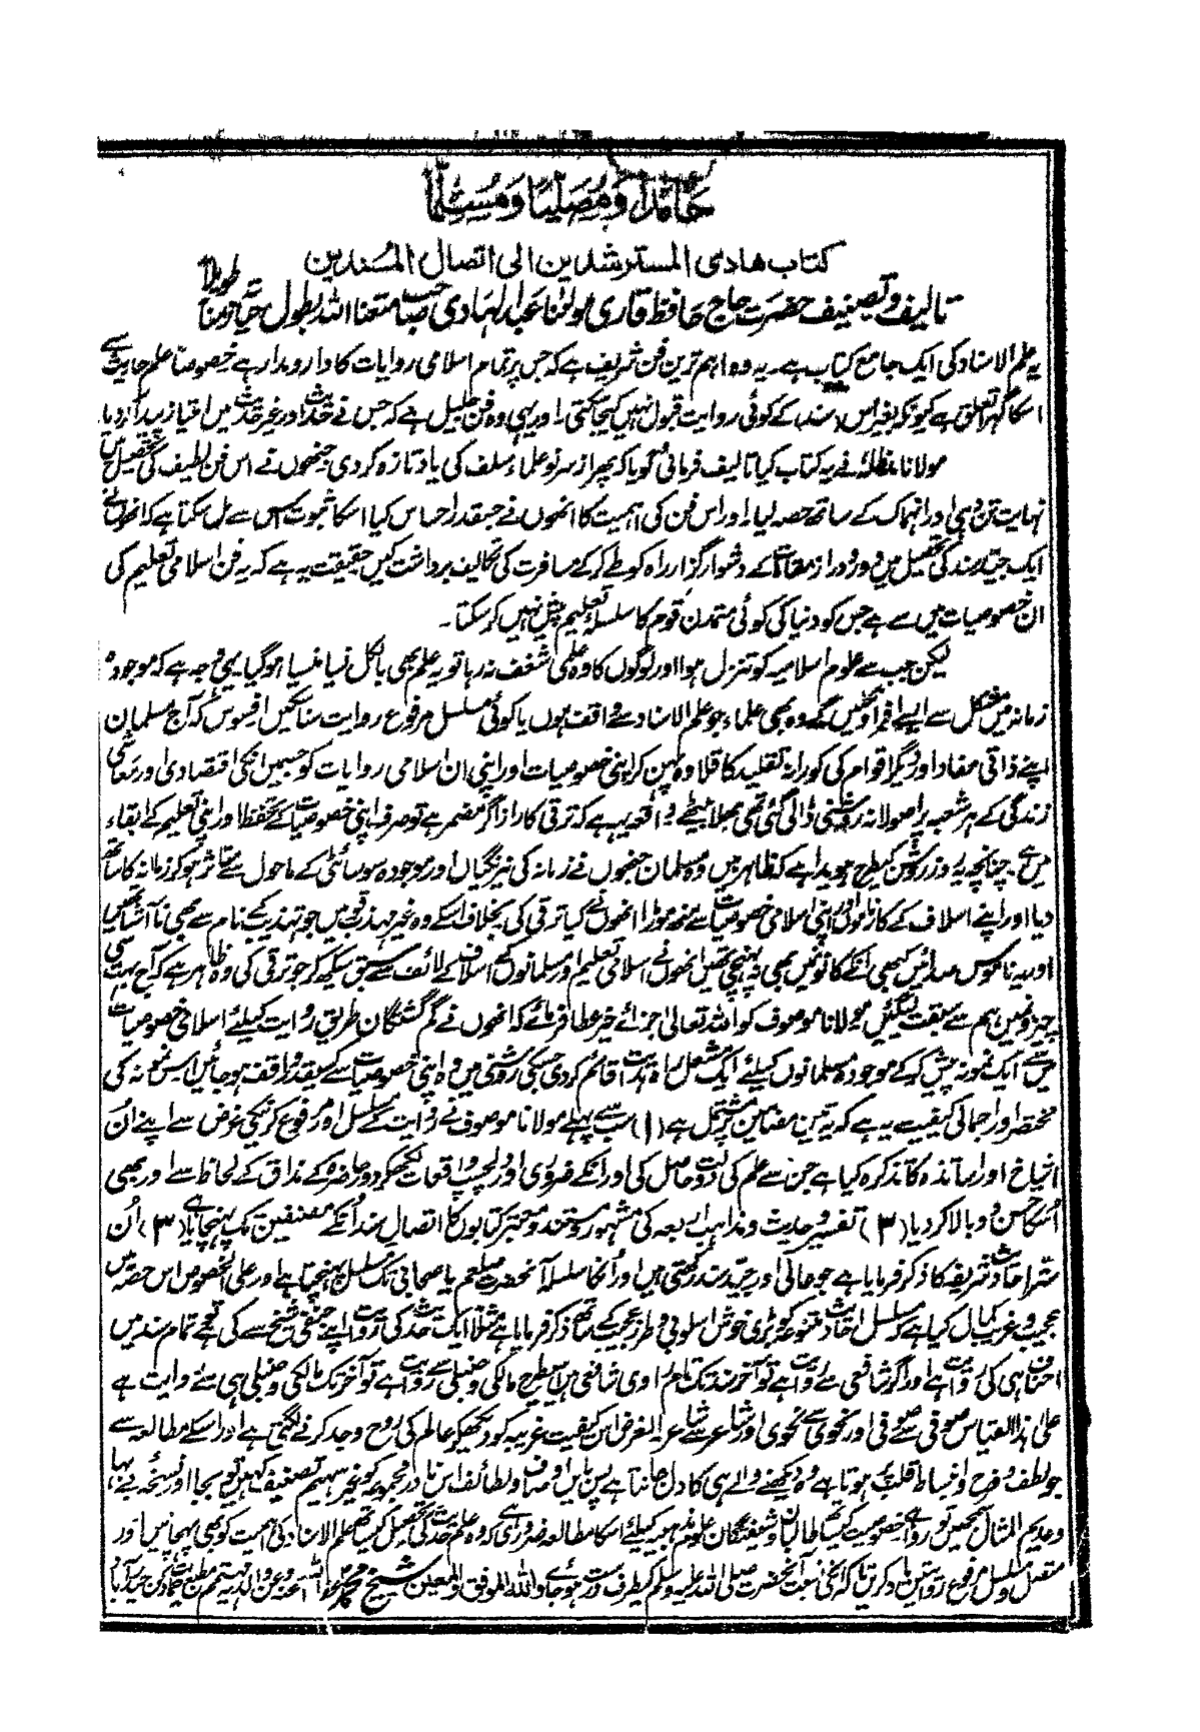 حَامِدًا وَمُصَلِّيًا وَمُسَلِّمًا
کتاب ھادی المسترشدین الی اتصال المسندین
تالیف و تصنیف حضرت حاج حافظ قاری مولٰنا عبد الہادی صاحب متعنا اللہ بطول حیاتہ زمنا طویلا
یہ علم الاسناد کی ایک جامع کتاب ہے۔ یہ وہ اہم ترین فن شریف ہے کہ جس پر تمام اسلامی روایات کا دار و مدار ہے خصوصاً علم حدیث سے
اسکا گہرا تعلق ہے کیونکہ بغیر اس سند کے کوئی روایت قبول نہیں کیجا سکتی۔ اور یہی وہ فن جلیل ہے کہ جس نے حدیث اور غیر حدیث میں امتیاز پیدا کر دیا
مولانا مدظلہ نے یہ کتاب کیا تالیف فرمائی گویا کہ پھر از سر نو علماء سلف کی یاد تازہ کر دی جنھوں نے اس فن لطیف کی تحصیل میں
نہایت تن دہی اور انہماک کے ساتھ حصہ لیا۔ اور اس فن کی اہمیت کا انھوں نے جسقدر احساس کیا اسکا ثبوت اس سے مل سکتا ہے کہ انھوں نے
ایک جید سند کی تحصیل میں دور دراز مقامات کے دشوار گزار راہ کو طے کر کے مسافرت کی تکالیف برداشت کیں حقیقت یہ ہے کہ یہ فن اسلامی تعلیم کی
ان خصوصیات میں سے ہے جس کو دنیا کی کوئی متمدن قوم کا سلسلہ تعلیم پیش نہیں کر سکتا۔
لیکن جب سے علوم اسلامیہ کو تنزل ہوا اور لوگوں کا وہ علمی شغف نہ رہا تو یہ علم بھی بالکل نسیا منسیا ہو گیا۔ یہی وجہ ہے کہ موجودہ
زمانہ میں مشکل سے ایسے افراد نکلیں گے وہ بھی علماء جو علم الاسناد سے واقف ہوں یا کوئی مسلسل مرفوع روایت سنا سکیں افسوس کہ آج مسلمان
اپنے ذاتی مفاد اور دیگر اقوام کی کورانہ تقلید کا قلاوہ پہن کر اپنی خصوصیات اور اپنی ان اسلامی روایات کو جسمیں انکی اقتصادی اور معاشی
زندگی کے ہر شعبہ پر اصولانہ روشنی ڈالی گئی تھی بھلا بیٹھے واقعہ یہ ہے کہ ترقی کا راز اگر مضمر ہے تو صرف اپنی خصوصیات کے تحفظ اور اپنی تعلیم کے ابقاء
میں ہے۔ چنانچہ یہ روز روشن کیطرح ہویدا ہے کہ ظاہر میں وہ مسلمان جنھوں نے زمانہ کی نیرنگیاں اور موجودہ سوسائٹی کے ماحول سے متاثر ہو کر زمانہ کا ساتھ
دیا اور اپنے اسلاف کے کارناموں اور اپنی اسلامی خصوصیات سے منھ موڑا انھوں نے کیا ترقی کی بخلاف اسکے وہ غیر مہذب قومیں جو تہذیب کے نام سے بھی نا آشنا تھیں
اور یہ ناموس صدائیں کبھی انکے کانوں میں بھی نہ پہنچی تھیں انھوں نے اسلامی تعلیم اور مسلمانوں کے اسلاف کے لائف سے سبق سیکھ کر جو ترقی کی وہ ظاہر ہے کہ آج بہت سی
چیزوں میں ہم سے سبقت لیگئیں مولانا موصوف کو اللہ تعالیٰ جزائے خیر عطا فرمائے کہ انھوں نے گم گشتگان طریق روایت کیلئے اسلامی خصوصیات
میں سے ایک نمونہ پیش کر کے موجودہ مسلمانوں کیلئے ایک مشعل راہ ہدایت قائم کر دی جسکی روشنی میں وہ اپنی خصوصیات سے کسیقدر واقف ہو جائیں اس نمونہ کی
مختصر اور اجمالی کیفیت یہ ہے کہ یہ تین مضامین پر مشتمل ہے (۱) سب سے پہلے مولانا موصوف نے روایت کے سلسلہ کو مرفوع کرنیکی غرض سے اپنے اُن
اشیاخ اور اساتذہ کا تذکرہ کیا ہے جن سے علم کی دولت حاصل کی اور انکے ضروری اور دلچسپ واقعات لکھکر دور حاضرہ کے مذاق کے لحاظ سے اور بھی
اُسکا حسن دوبالا کر دیا (۲) تفسیر و حدیث و مذاہب اربعہ کی مشہور و مستند و معتبر کتابوں کا اتصال سند اُنکے مصنفین تک پہنچایا ہے (۳) اُن
ستر احادیث شریفہ کا ذکر فرمایا ہے جو عالی اور جید سند رکھتی ہیں اور اُنکا سلسلہ آنحضرت صلعم یا صحابی تک مسلسل پہنچتا ہے اور علی الخصوص اس حصہ میں
عجیب و غریب کمال کیا ہے کہ مسلسل احادیث متنوعہ کو بڑی خوش اسلوبی و طرز عجیب کے ساتھ ذکر فرمایا ہے مثلاً ایک حدیث کی روایت اپنے حنفی شیخ سے کی تو تمام سند میں
احناف ہی کی روایت ہے اور اگر شافعی سے روایت ہے تو آخر سند تک تمام راوی شافعی ہیں اسیطرح مالکی و حنبلی سے روایت ہے تو آخر تک مالکی و حنبلی ہی سے روایت ہے
علیٰ ہذا القیاس صوفی سے صوفی اور نحوی سے نحوی اور شاعر سے شاعر۔ الغرض اس کیفیت غریبہ کو دیکھکر عالم کی روح وجد کرنے لگتی ہے اور اسکے مطالعہ سے
جو لطف و فرح و انبساط قلب ہوتا ہے وہ دیکھنے والے ہی کا دل جانتا ہے پس باین اوصاف و لطائف اس نادر مجموعہ کو غیر سہیم تصنیف کہیں تو بجا اور نسخہ بے بہا
و عدیم المثال سمجھیں تو روا ہے خصوصیت کیساتھ طالبان و شیفتگان علوم مذہبیہ کیلئے اسکا مطالعہ ضروری ہے کہ وہ علم حدیث کی تحصیل کیساتھ علم الاسناد کی اہمیت کو بھی پہچانیں اور
متصل و مسلسل مرفوع روایتیں یاد کریں تاکہ انکی نسبت آنحضرت صلی اللہ علیہ وسلم کیطرف درست ہو جائے واللہ الموفق والمعین شیخ محمد عفا اللہ عنہ و عن والدیہ مہتمم مطبع حیدرآباد